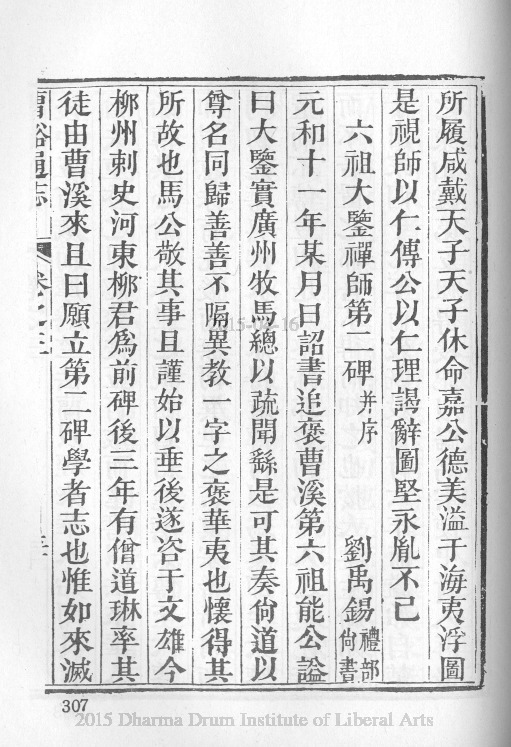 所履咸戴天子天子休命嘉公德美溢于海夷浮圖
是視師以仁傳公以仁理謁辭圖堅永胤不已
六祖大鑒禪師第二碑并序 劉禹錫禮部尙書
元和十一年某月日詔書追褒曹溪第六祖能公諡
曰大鑒實廣州牧馬總以疏聞繇是可其奏尙道以
尊名同歸善善不隔異教一字之褒華夷也懷得其
所故也馬公敬其事且謹始以垂後遂咨于文雄今
柳州剌史河東柳君爲前碑後三年有僧道琳率其
徒由曹溪來且曰願立第二碑學者志也惟如來滅
曹谿通志 卷之三
307
2015 Dharma Drum Institute of Liberal Arts